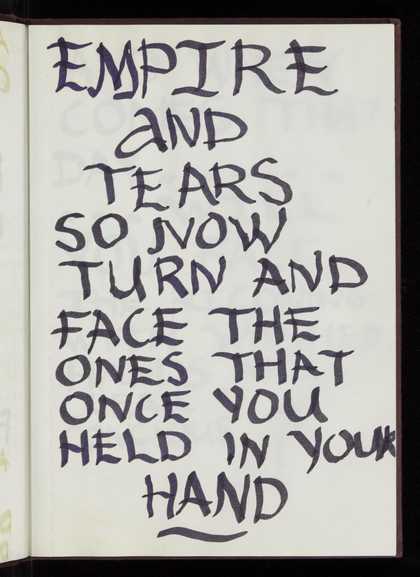 EMPIRE
AND
TEARS
SO NOW
TURN AND
FACE THE
ONES THAT
ONCE YOU
HELD IN YOUR
HAND